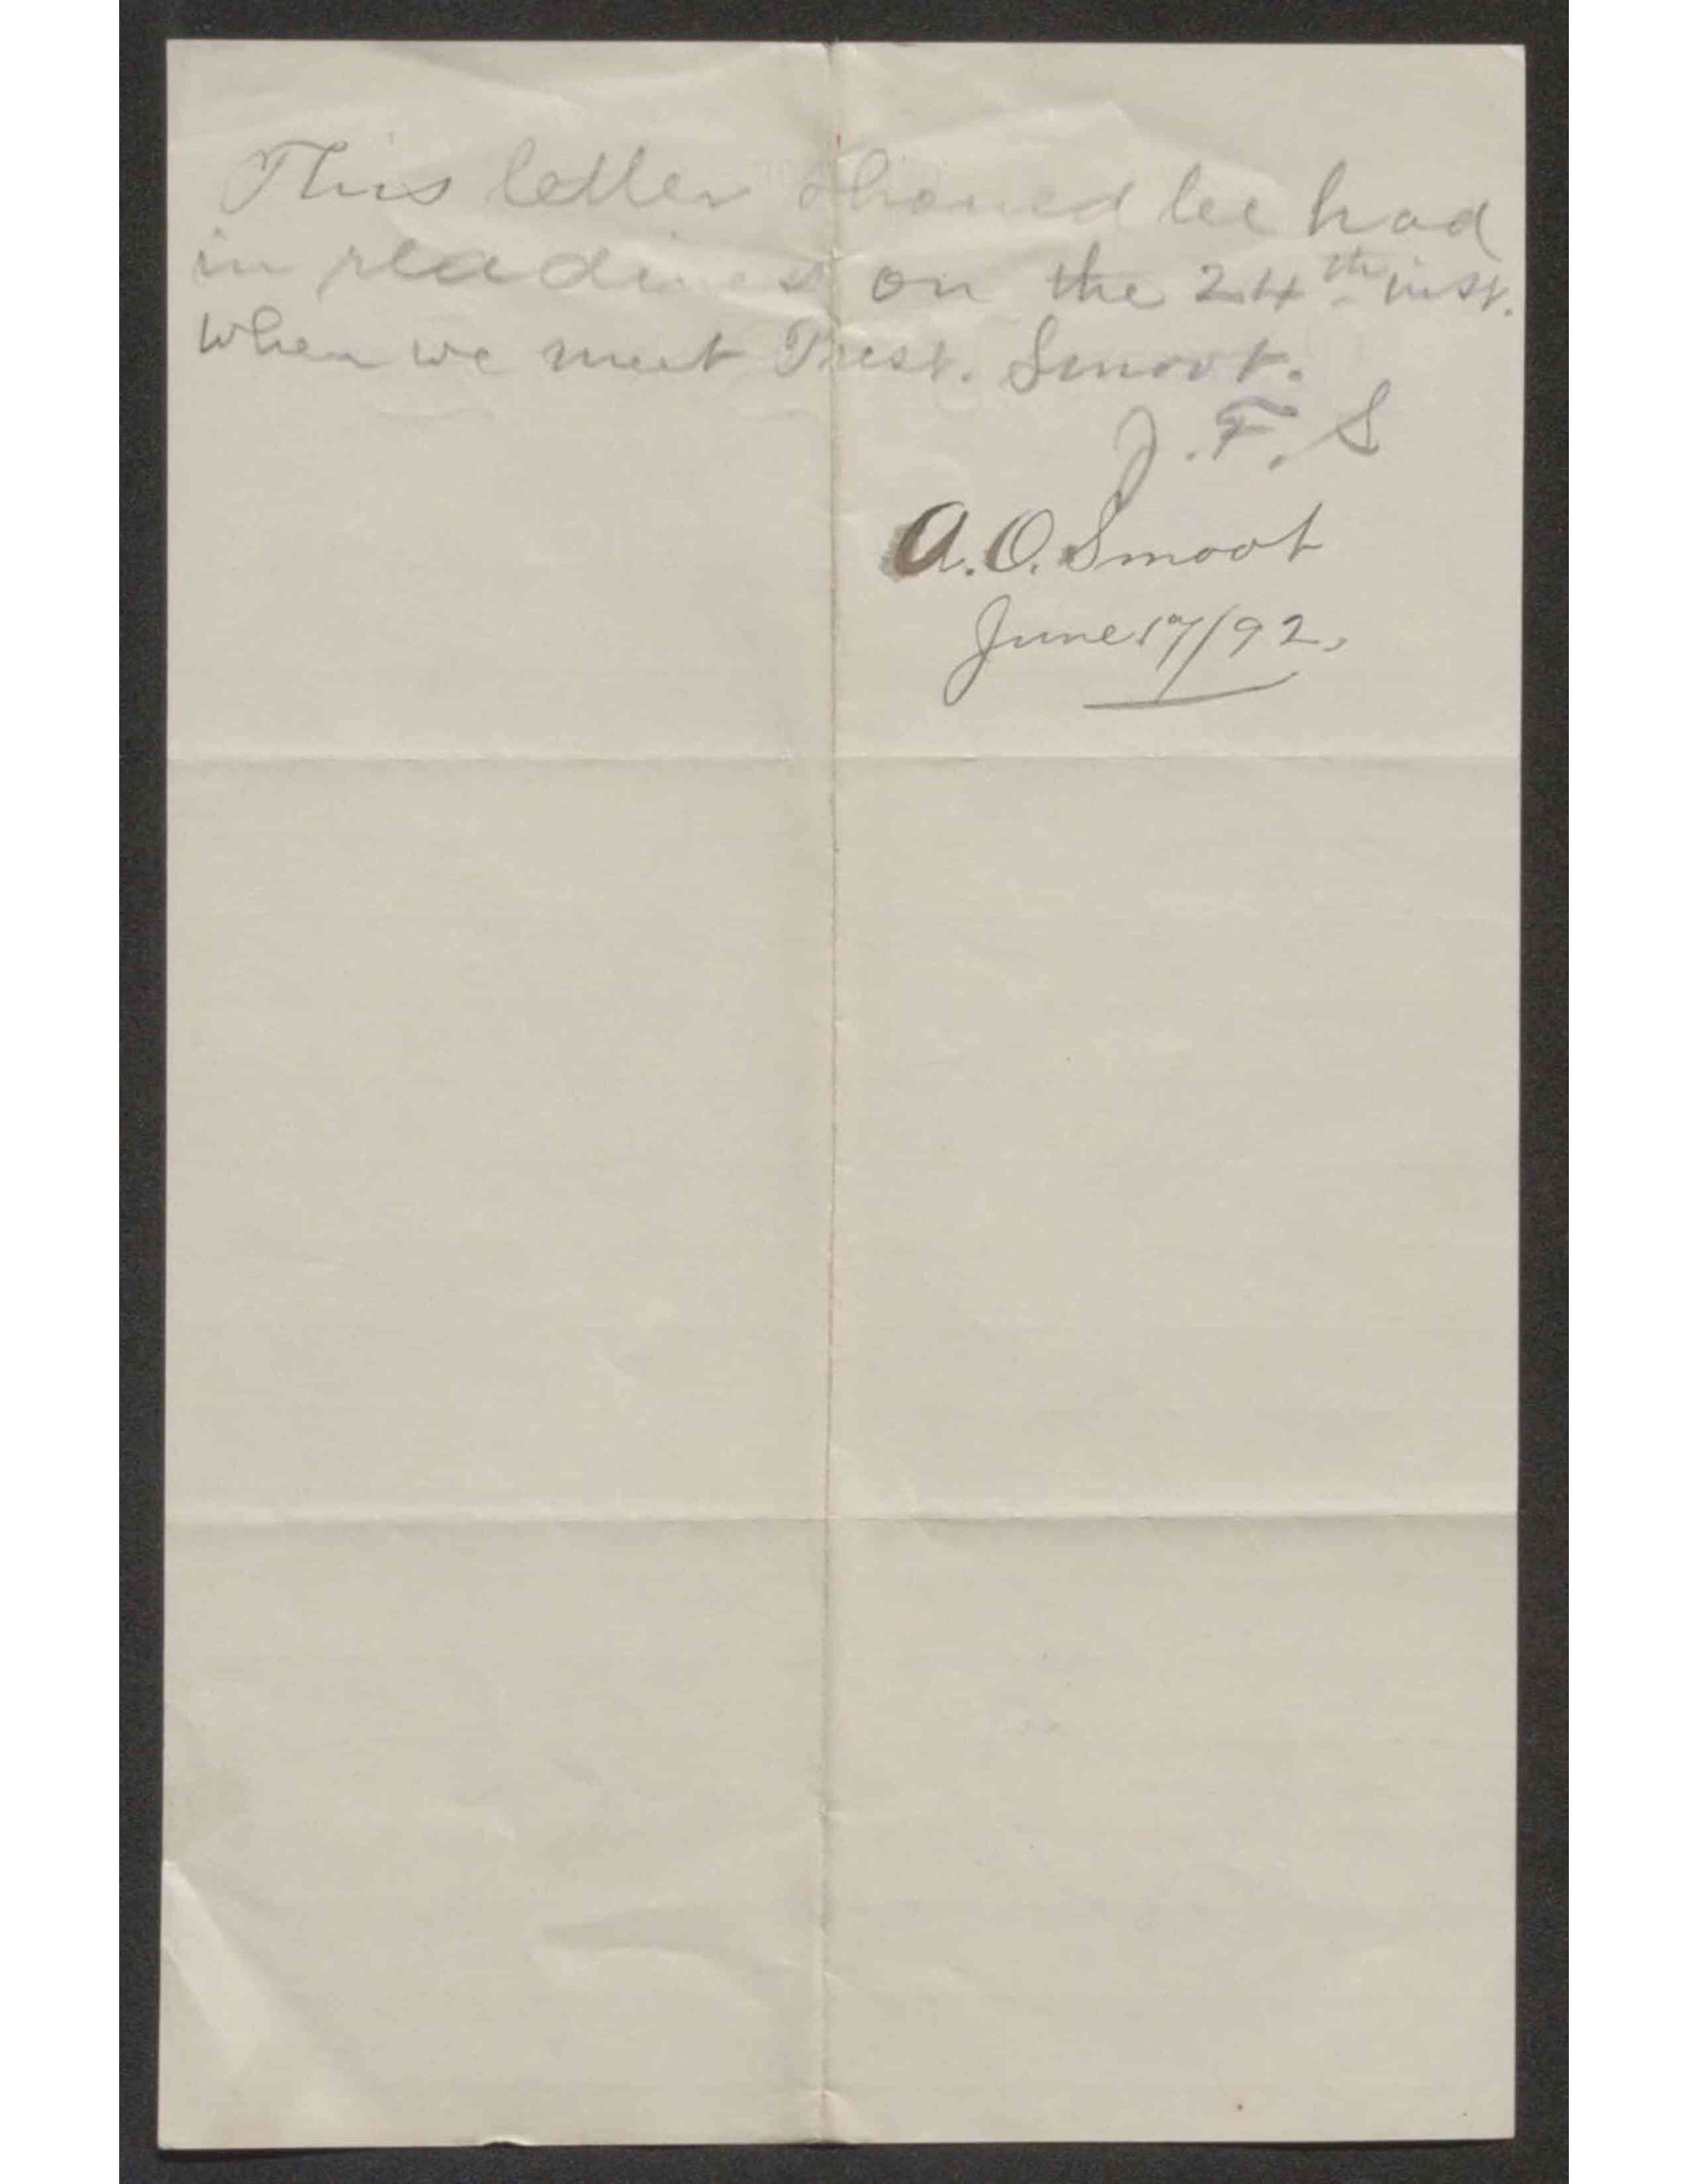 This letter should be had
in readiness on the 24th inst.
when we meet Prest. Smoot.
J. F. S
A. O. Smoot
June 17/92.